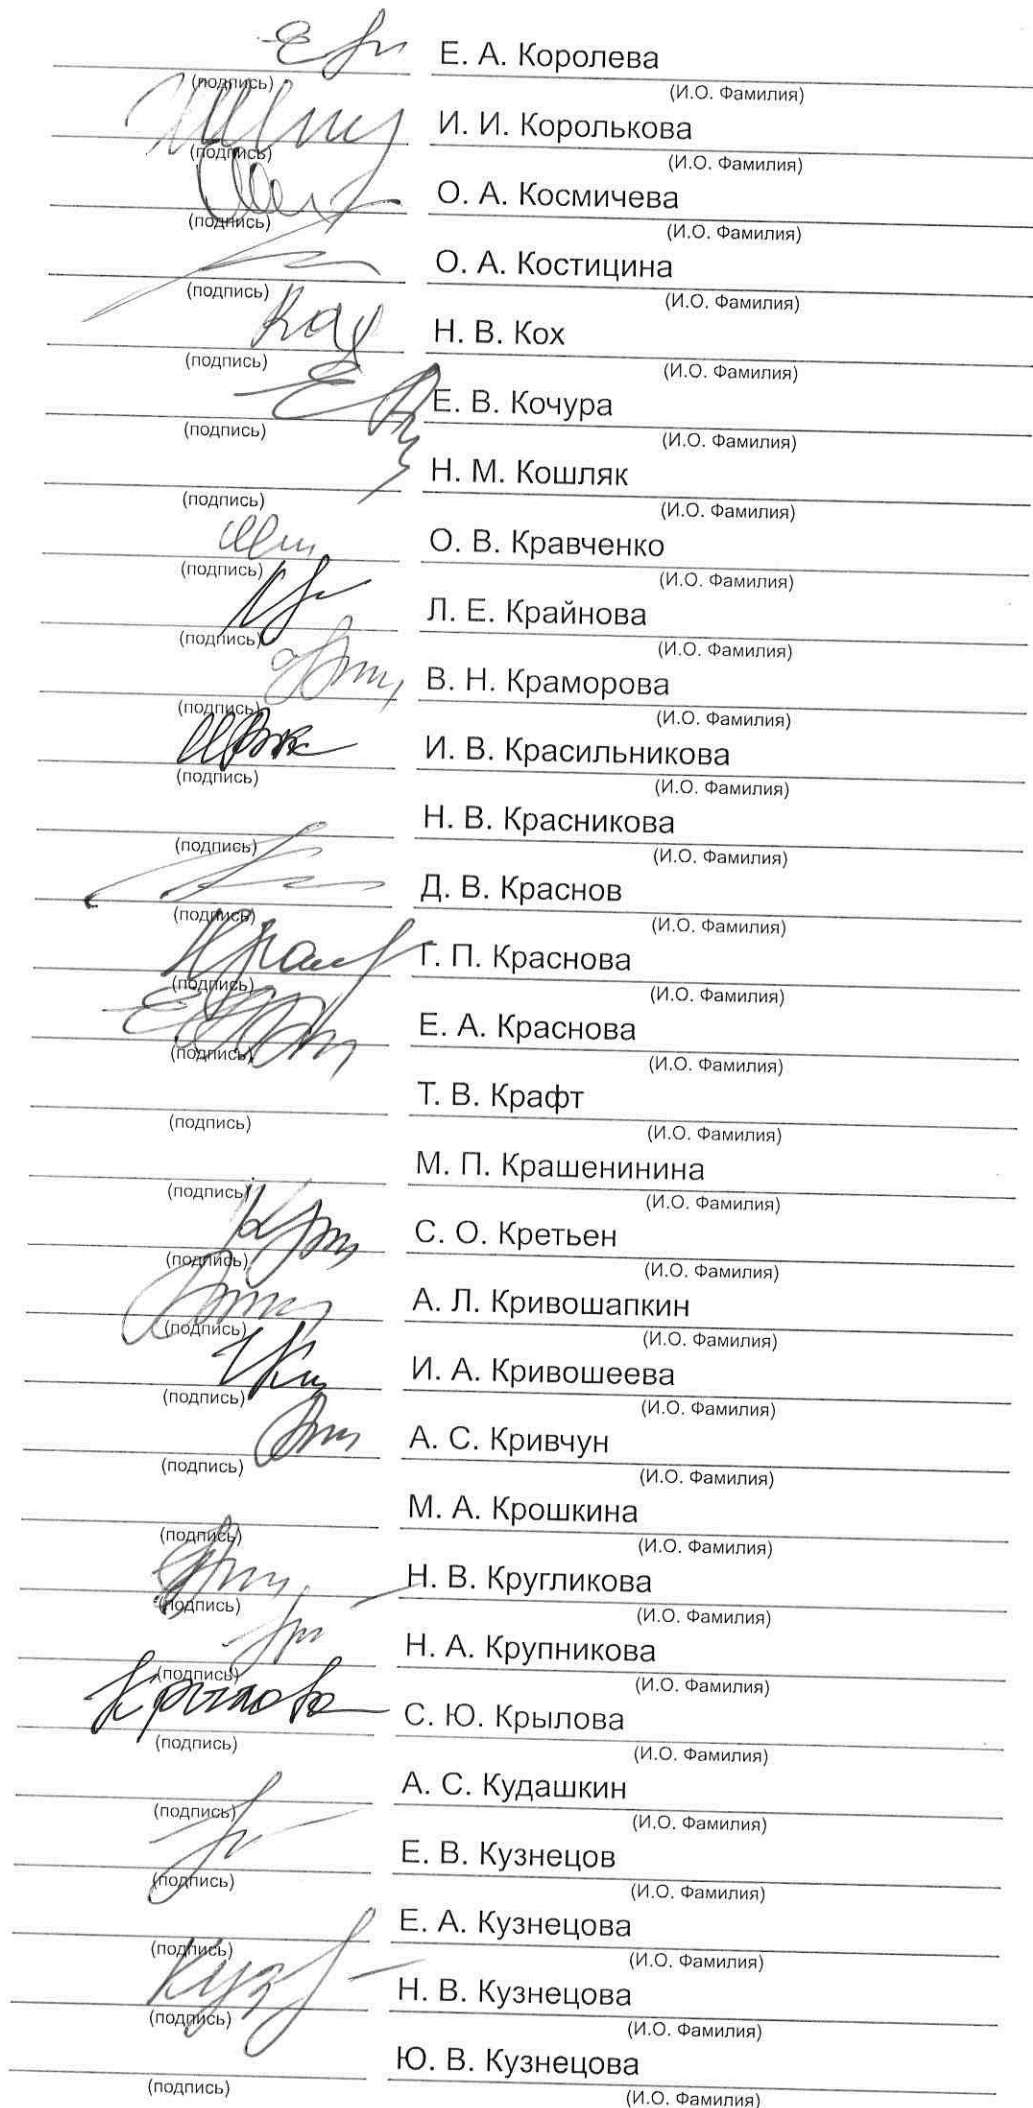 Е. А. Королева
(подпись) (И.О. Фамилия)
И. И. Королькова
(подпись) (И.О. Фамилия)
О. А. Космичева
(подпись) (И.О. Фамилия)
О. А. Костицина
(подпись) (И.О. Фамилия)
Кох Н. В. Кох
(подпись) (И.О. Фамилия)
Е. В. Кочура
(подпись) (И.О. Фамилия)
Н. М. Кошляк
(подпись) (И.О. Фамилия)
О. В. Кравченко
(подпись) (И.О. Фамилия)
Л. Е. Крайнова
(подпись) (И.О. Фамилия)
В. Н. Краморова
(подпись) (И.О. Фамилия)
И. В. Красильникова
(подпись) (И.О. Фамилия)
Н. В. Красникова
(подпись) (И.О. Фамилия)
Д. В. Краснов
(подпись) (И.О. Фамилия)
Г. П. Краснова
(подпись) (И.О. Фамилия)
Е. А. Краснова
(подпись) (И.О. Фамилия)
Т. В. Крафт
(подпись) (И.О. Фамилия)
М. П. Крашенинина
(подпись) (И.О. Фамилия)
С. О. Кретьен
(подпись) (И.О. Фамилия)
А. Л. Кривошапкин
(подпись) (И.О. Фамилия)
И. А. Кривошеева
(подпись) (И.О. Фамилия)
А. С. Кривчун
(подпись) (И.О. Фамилия)
М. А. Крошкина
(подпись) (И.О. Фамилия)
Н. В. Кругликова
(подпись) (И.О. Фамилия)
Н. А. Крупникова
(подпись) (И.О. Фамилия)
Крылова С. Ю. Крылова
(подпись) (И.О. Фамилия)
А. С. Кудашкин
(подпись) (И.О. Фамилия)
Е. В. Кузнецов
(подпись) (И.О. Фамилия)
Е. А. Кузнецова
(подпись) (И.О. Фамилия)
Н. В. Кузнецова
(подпись) (И.О. Фамилия)
Ю. В. Кузнецова
(подпись) (И.О. Фамилия)